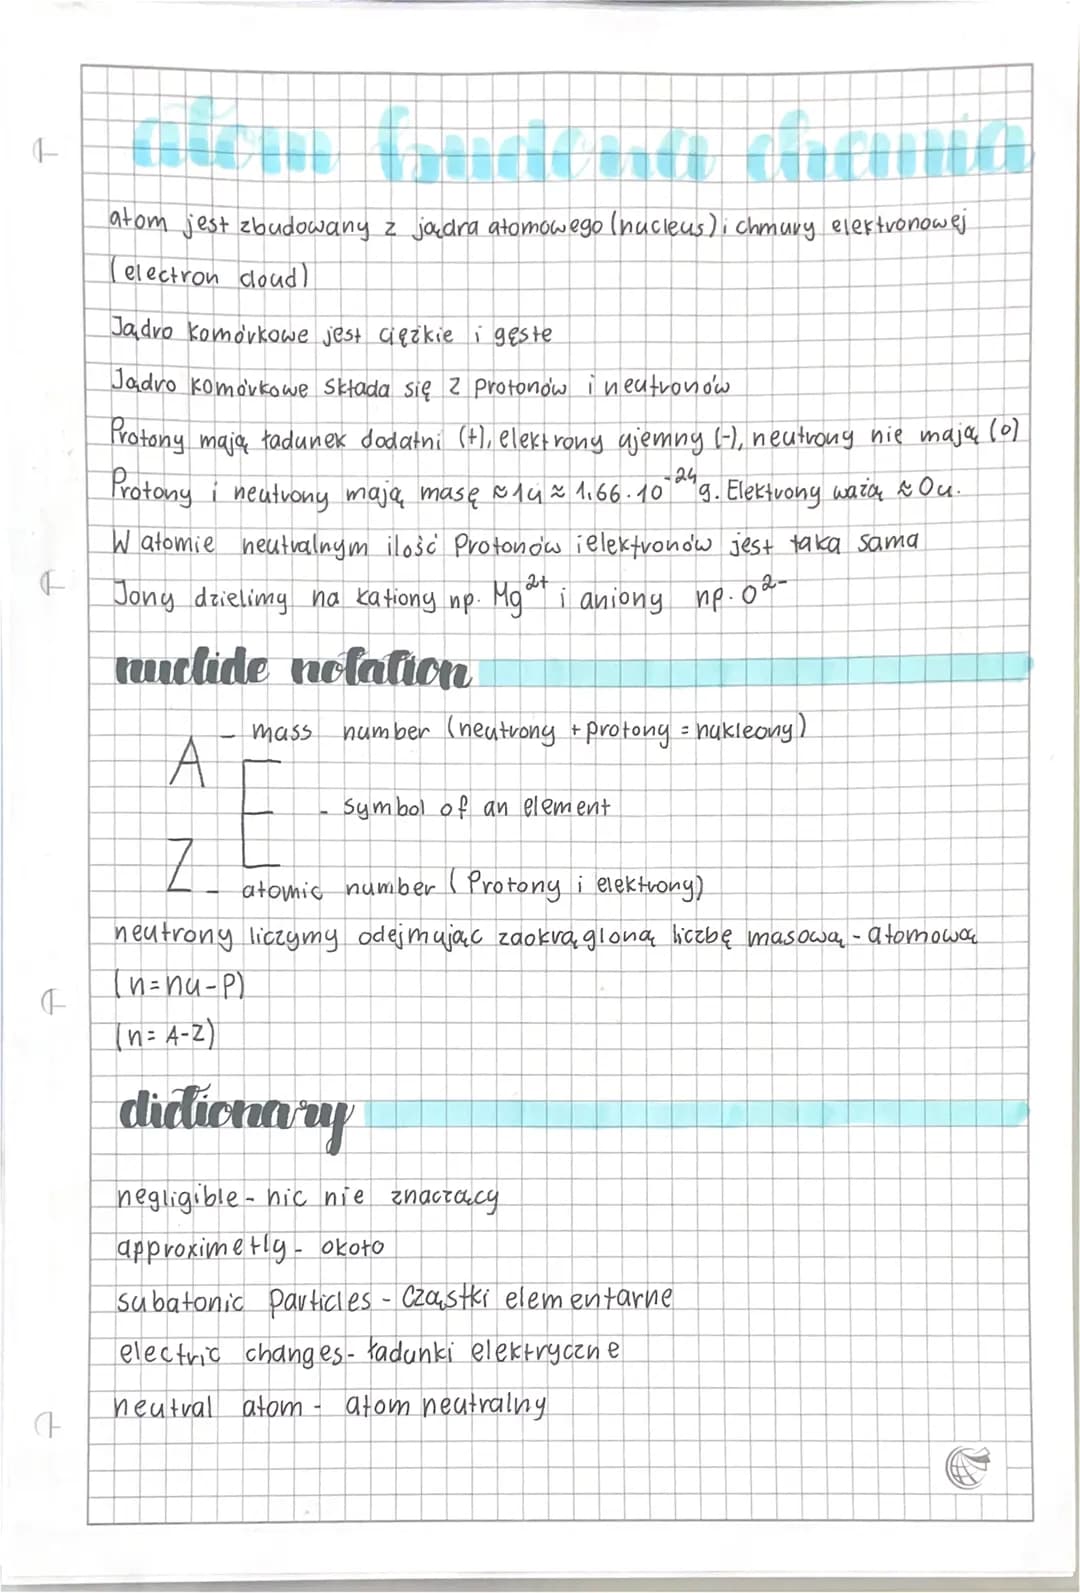 atom budowa chemia
atom jest zbudowany z jądra atomowego (nucleus) i chmury elektronowej
(electron cloud)
Jądro komórkowe jest ciężkie i gęste
Jądro komórkowe składa się z protonów i neutronów
Protony mają ładunek dodatni (+), elektrony ujemny (-), neutrony nie mają (0)
Protony i neutrony mają masę ≈1u ≈ 1,66·10⁻²⁴g. Elektrony ważą ≈0u.
W atomie neutralnym ilość Protonów i elektronów jest taka sama
Jony dzielimy na kationy np. Mg²⁺ i aniony np. O²⁻
nuclide notation
A - mass number (neutrony + protony = nukleony)
E - symbol of an element
Z - atomic number (Protony i elektrony)
neutrony liczymy odejmując zaokrągloną liczbę masową - atomową
(n=nu-p)
(n= A-Z)
dictionary
negligible - nic nie znaczący
approximetly - około
subatonic particles - Cząstki elementarne
electric changes - ładunki elektryczne
neutral atom - atom neutralny